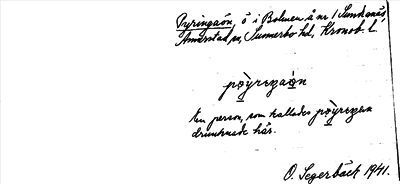 Pyringaön, ö i Bolmen å nr 1 Sunnanå,
Annerstad, sn, Sunnerbo hd, Kronob. l.
pø̀yreŋaø̀n
En person, som kallades pø̀yreŋen
drunknade här.
O. Segerbäck 1941.